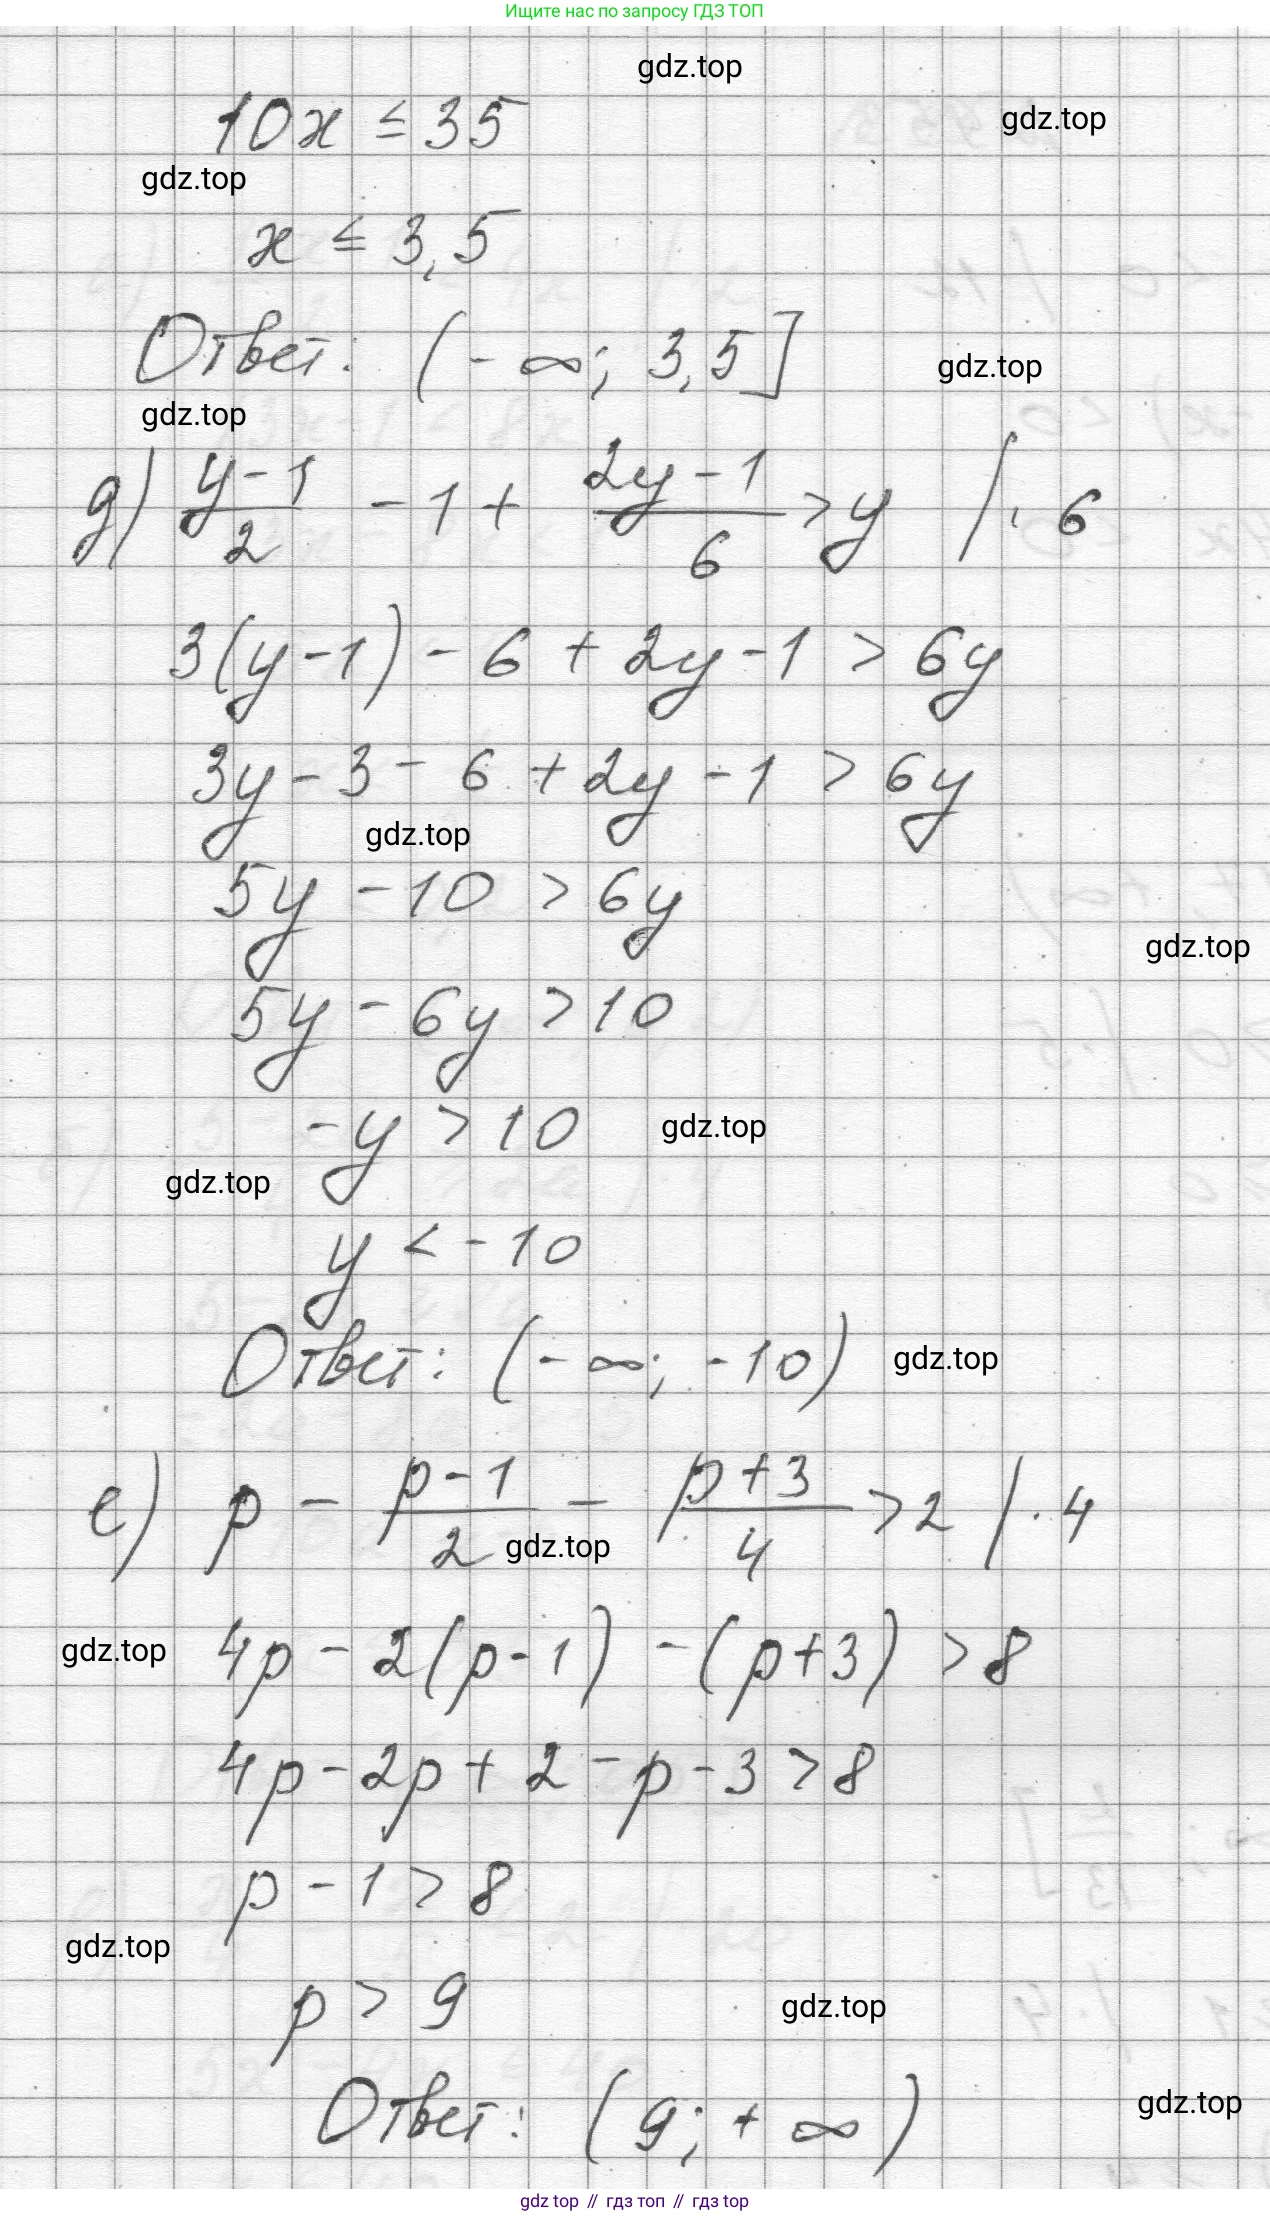 Ищите нас по запросу ГДЗ ТОП
gdz.top
10x ≤ 35
gdz.top
gdz.top
x ≤ 3,5
Ответ: (-∞; 3,5]
gdz.top
gdz.top
д) (y-1)/2 - 1 + (2y-1)/6 > y | · 6
3(y-1) - 6 + 2y - 1 > 6y
3y - 3 - 6 + 2y - 1 > 6y
gdz.top
5y - 10 > 6y
gdz.top
5y - 6y > 10
-y > 10
gdz.top
gdz.top
y < -10
Ответ: (-∞; -10)
gdz.top
е) p - (p-1)/2 - (p+3)/4 > 2 | · 4
gdz.top
4p - 2(p-1) - (p+3) > 8
gdz.top
4p - 2p + 2 - p - 3 > 8
p - 1 > 8
gdz.top
p > 9
gdz.top
Ответ: (9; +∞)
gdz.top
gdz top // гдз топ // гдз top